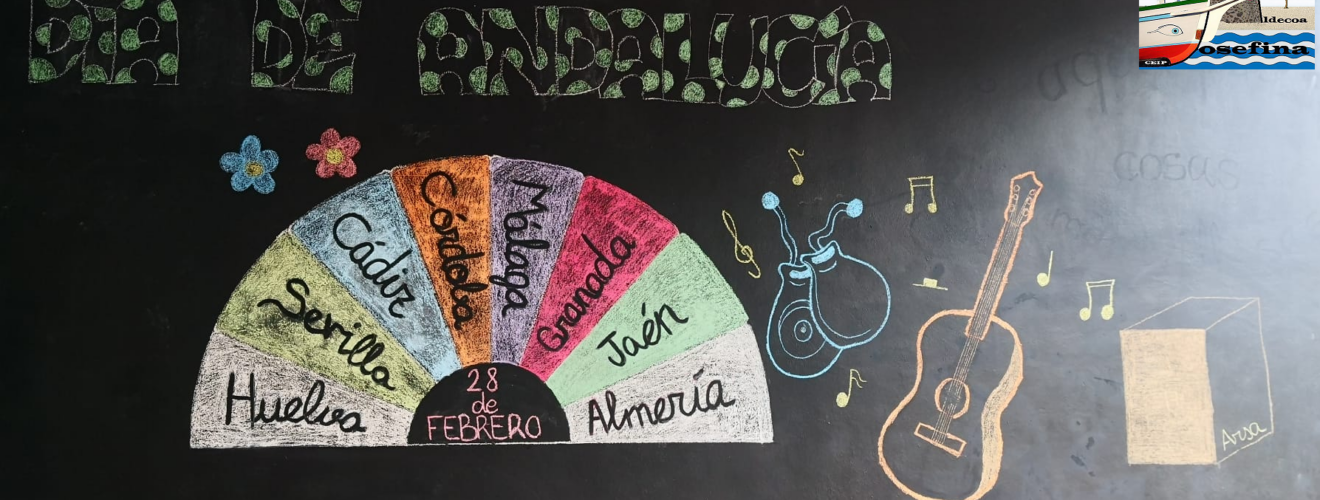 DIA DE ANDALUCÍA
ldecoa
osefina
CEIP
cosas
Huelva
Sevilla
Cádiz
Córdoba
Málaga
Granada
Jaén
Almería
28
de
FEBRERO
Arsa